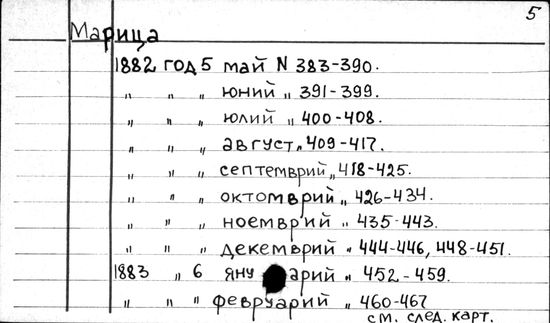 5
Марица
1882 год 5 май N 383-390.
" " " юний " 391-399.
" " " юлий " 400-408.
" " " август " 409-417.
" " " септемврий " 418-425.
" " " октомврий " 426-434.
" " " ноемврий " 435-443.
" " " декемврий " 444-446, 448-451.
1883 " 6 януарий " 452-459.
" " " февруарий " 460-467
см. след. карт.